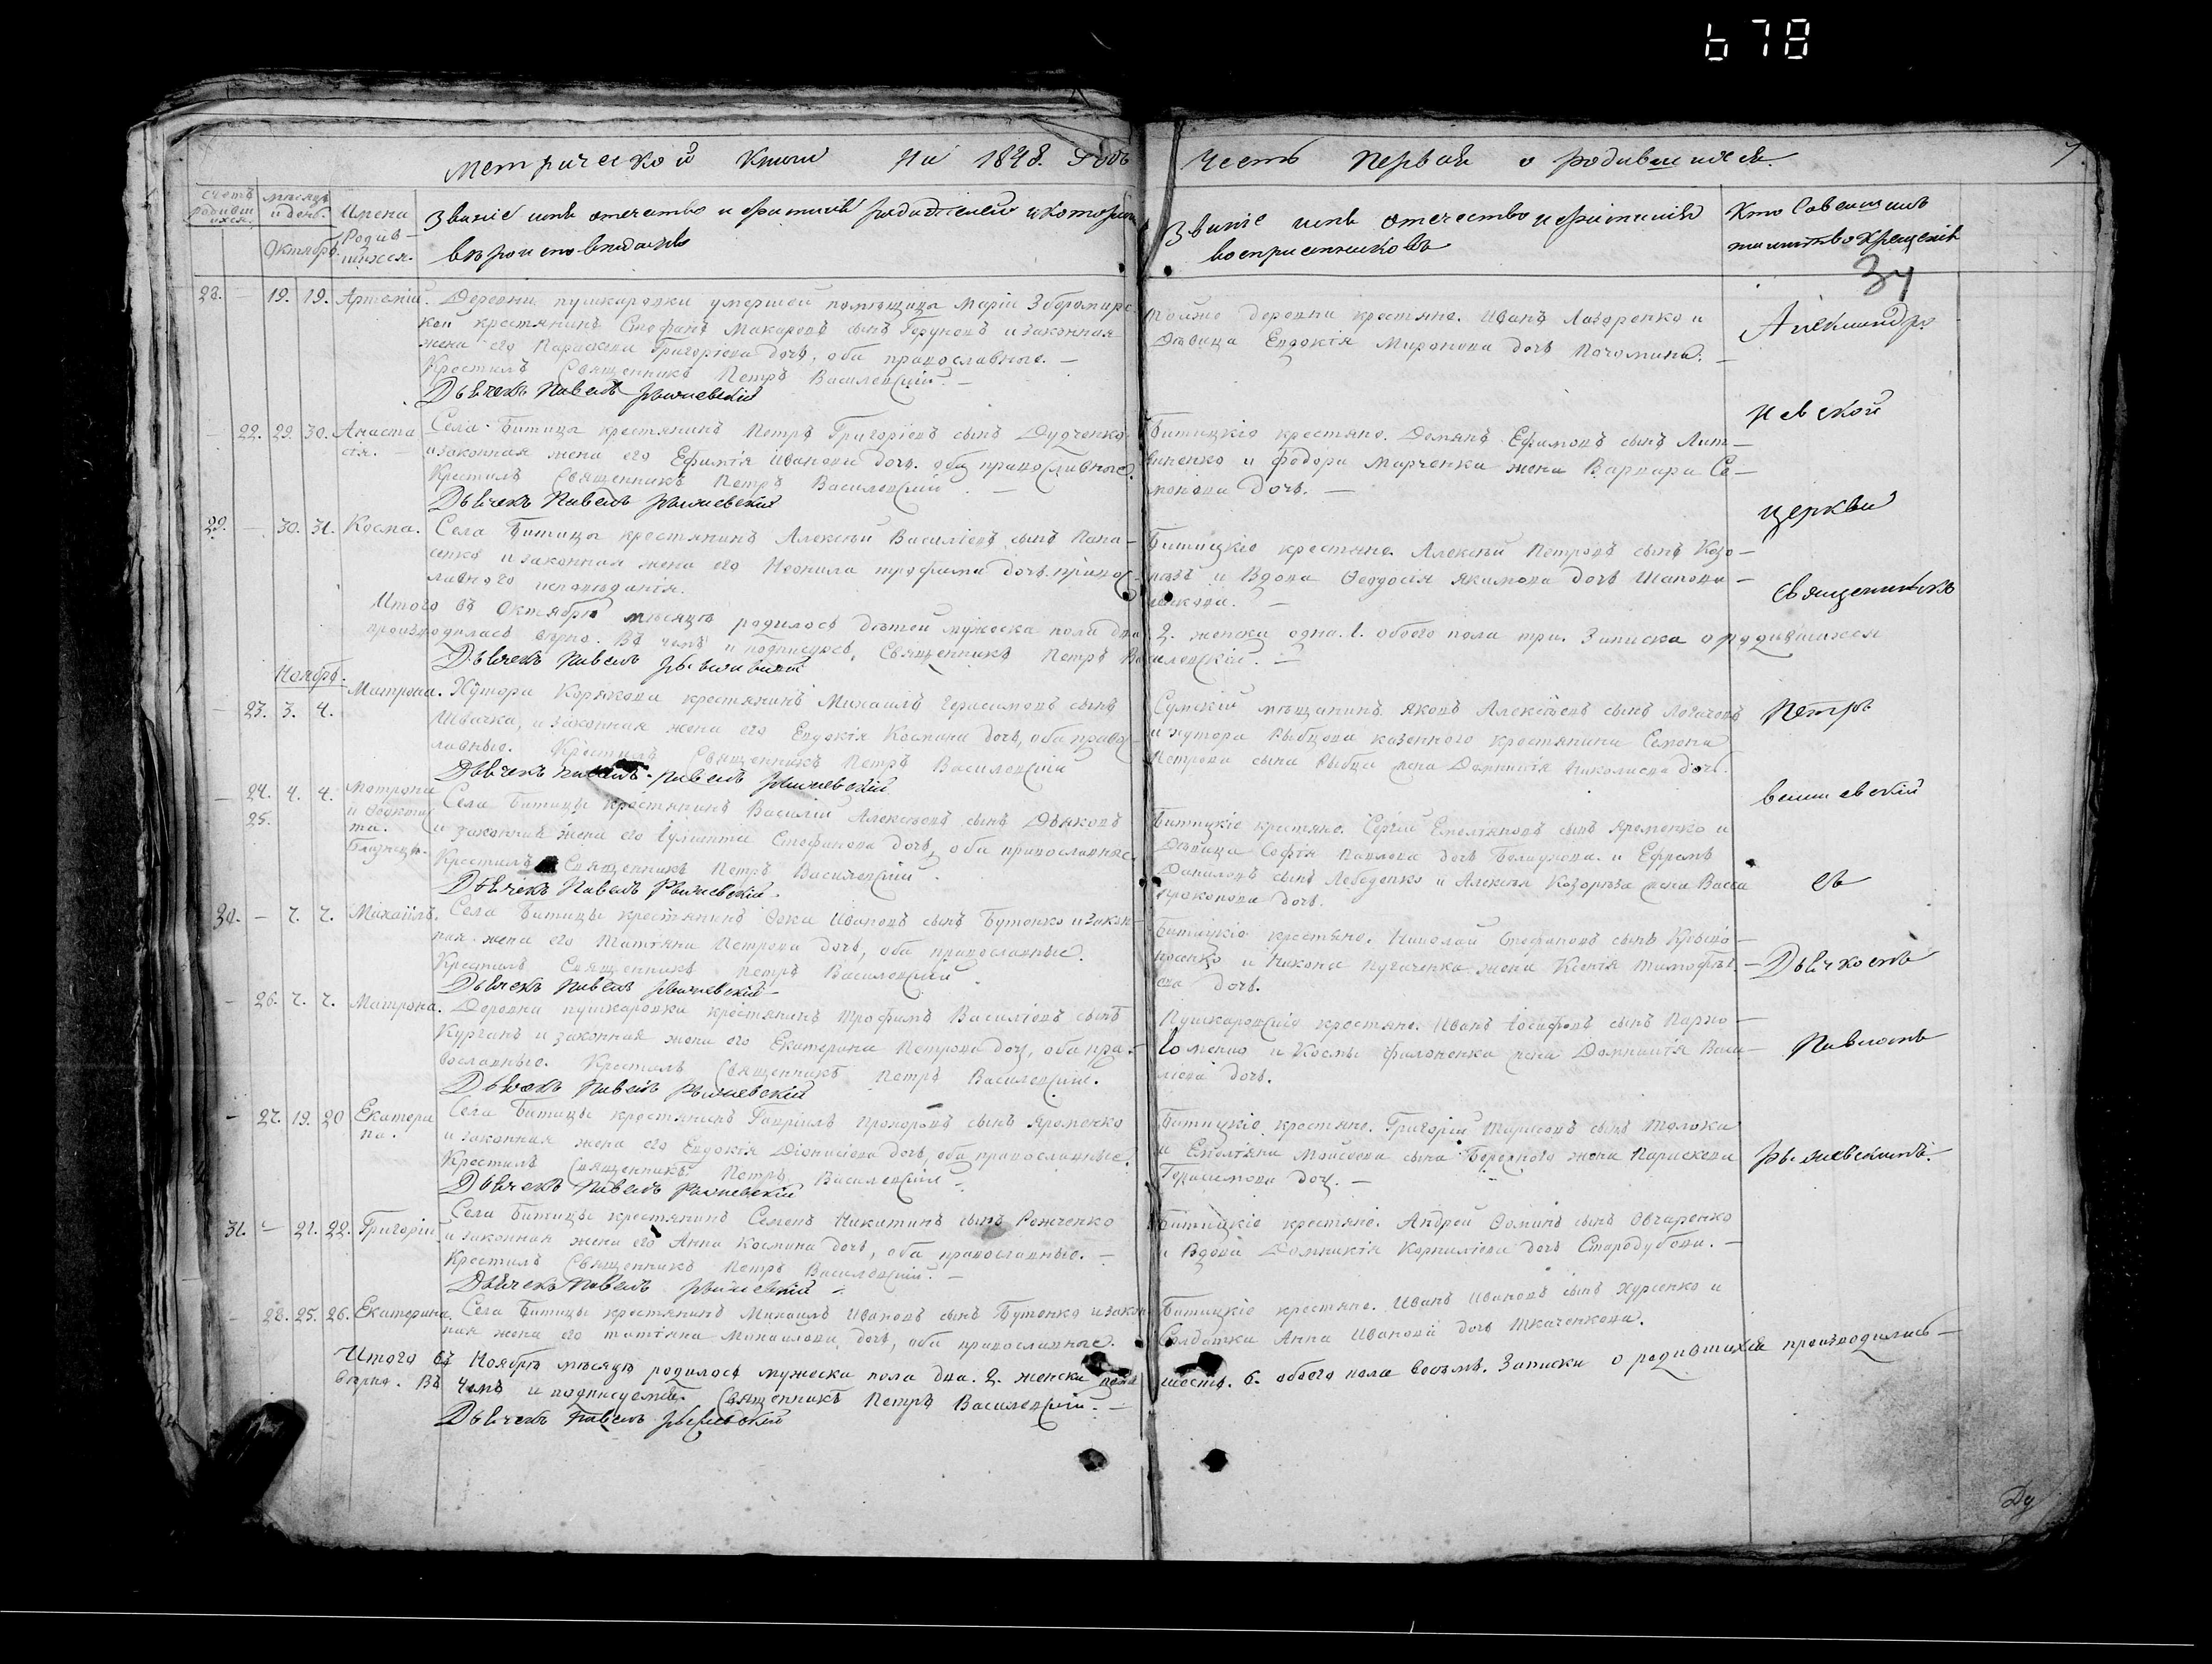 678
Метрической Книги на 1848. Годъ
Часть Первая о родившихся.
счетъ родившихся.
мѣсяцъ и день.
Октябрь.
Имена Родившихся.
Званіе имя отечество и фамилія родителей и котораго
вѣроисповѣданія
Званіе имя отечество и фамилія
воспріемниковъ
Кто Совершалъ
таинство крещенія
34
28. – 19. 19. Артемій. Деревни пушкаровки умершей помѣщицы Маріи
кой крестянинъ Стефанъ Макаровъ сынъ и законная
жена его Параскева Григоріева дочь, оба православные. –
Крестилъ Священникъ Петръ Василевскій. –
Дьячекъ Павелъ
Тойже деревни крестяне. Иванъ Лазаренко и
дѣвица Евдокія Миронова дочь
– 22. 29. 30. Анастасія. Села Битицы крестянинъ Петръ Григоріевъ сынъ Дудченко
и законная жена его Ефимія Иванова дочь. оба православные.
Крестилъ Священникъ Петръ Василевскій. –
Дьячекъ Павелъ
Битицкіе крестяне. Демянъ Ефимовъ сынъ Лит–
виненко и Федора Марченка жена Варвара Се–
монова дочь. –
29. – 30. 31. Косма. Села Битицы крестянинъ Алексѣй Василіевъ сынъ Пана–
сенко и законная жена его Неонила трофима дочь. правос–
лавного исповѣданія.
Битицкіе крестяне. Алексѣй Петровъ сынъ Козо–
рѣзъ и Вдова Феодосія Якимова дочь Шапова–
Итого въ Октябрѣ мѣсяцѣ родилось дѣтей мужеска пола два 2. женска одна. 1. обоего пола три. Записка о родившихся
производилась вѣрно. Въ чемъ и подписуюсь, Священникъ Петръ Василевскій. –
Дьячекъ Павелъ
Ноябрь.
– 23. 3. 4. Матрона. Хутора Корякова крестянинъ Михаилъ Герасимовъ сынъ
Швачка, и законная жена его Евдокія Космина дочь, оба правос–
лавные. Крестилъ Священникъ Петръ Василевскій
Дьячекъ Павелъ
Сумскій мѣщанинъ Яковъ Алексѣевъ сынъ Логачовъ
и хутора Рыбцова казенного крестянина Семона
Петрова сына Рыбца жена Домникія Николаева дочь.
– 24. 25. 4. 4. Матрона и Феоктиста. Близнецы. Села Битицы крестянинъ Василій Алексѣевъ сынъ Дьяковъ
и законная жена его Іулиитта Стефанова дочь, оба православные.
Крестилъ Священникъ Петръ Василевскій.
Дьячекъ Павелъ
Битицкіе крестяне. Сергій Емеліяновъ сынъ Яременко и
дѣвица Софія Павлова дочь и Ефремъ
Даниловъ сынъ Лебеденко и Алексѣя Козорѣза жена Васса
Прокопова дочь.
30. – 7. 7. Михаилъ. Села Битицы крестянинъ Фока Ивановъ сынъ Бутенко и закон–
ная жена его Татіяна Петрова дочь, оба православные.
Крестилъ Священникъ Петръ Василевскій
Дьячекъ Павелъ
Битицкіе крестяне. Николай Стефановъ сынъ
и Никона Пугаченка жена Ксенія Тимофѣе–
ва дочь.
– 26. 7. 7. Матрона. Деревни пушкаровки крестянинъ Трофимъ Василіевъ сынъ
Курганъ и законная жена его Екатерина Петрова дочь, оба пра–
вославные. Крестилъ Священникъ Петръ Василевскій.
Дьячекъ Павелъ
Пушкаровскіе крестяне. Иванъ Іосифовъ сынъ
и Космы Филоненка жена Домникія Васи–
ліева дочь.
– 27. 19. 20 Екатерина. Села Битицы крестянинъ Гавріилъ Прохоровъ сынъ Яроменко
и законная жена его Евдокія Діонисіева дочь, оба православные.
Крестилъ Священникъ Петръ Василевскій –
Дьячекъ Павелъ
Битицкіе крестяне. Григорій сынъ Толока
и Емеліяна Моисеева сына жена Параскева
Герасимова дочь. –
31. – 21. 22. Григорій. Села Битицы крестянинъ Семенъ Никитинъ сынъ
и законная жена его Анна Космина дочь, оба православные. –
Крестилъ Священникъ Петръ Василевскій. –
Дьячекъ Павелъ
Битицкіе крестяне. Андрей Фоминъ сынъ Овчаренко
и Вдова Домникія Корниліева дочь Стародубова. –
– 28. 25. 26. Екатерина. Села Битицы крестянинъ Михаилъ Ивановъ сынъ Бутенко и закон
ная жена его татіяна Михайлова дочь, оба православные.
Битицкіе крестяне. Иванъ Ивановъ сынъ и
Солдатка Анна Иванова дочь Ткаченкова.
Итого въ Ноябрѣ мѣсяцѣ родилось мужеска пола два. 2. женска пола шесть. 6. обоего пола восьмъ. Записка о родившихся производилась –
вѣрно. Въ чемъ и подписуемся. Священникъ Петръ Василевскій. –
Дьячекъ Павелъ
Александро
невской
церкви
священникъ
Петръ
съ
Дьячкомъ
Павломъ